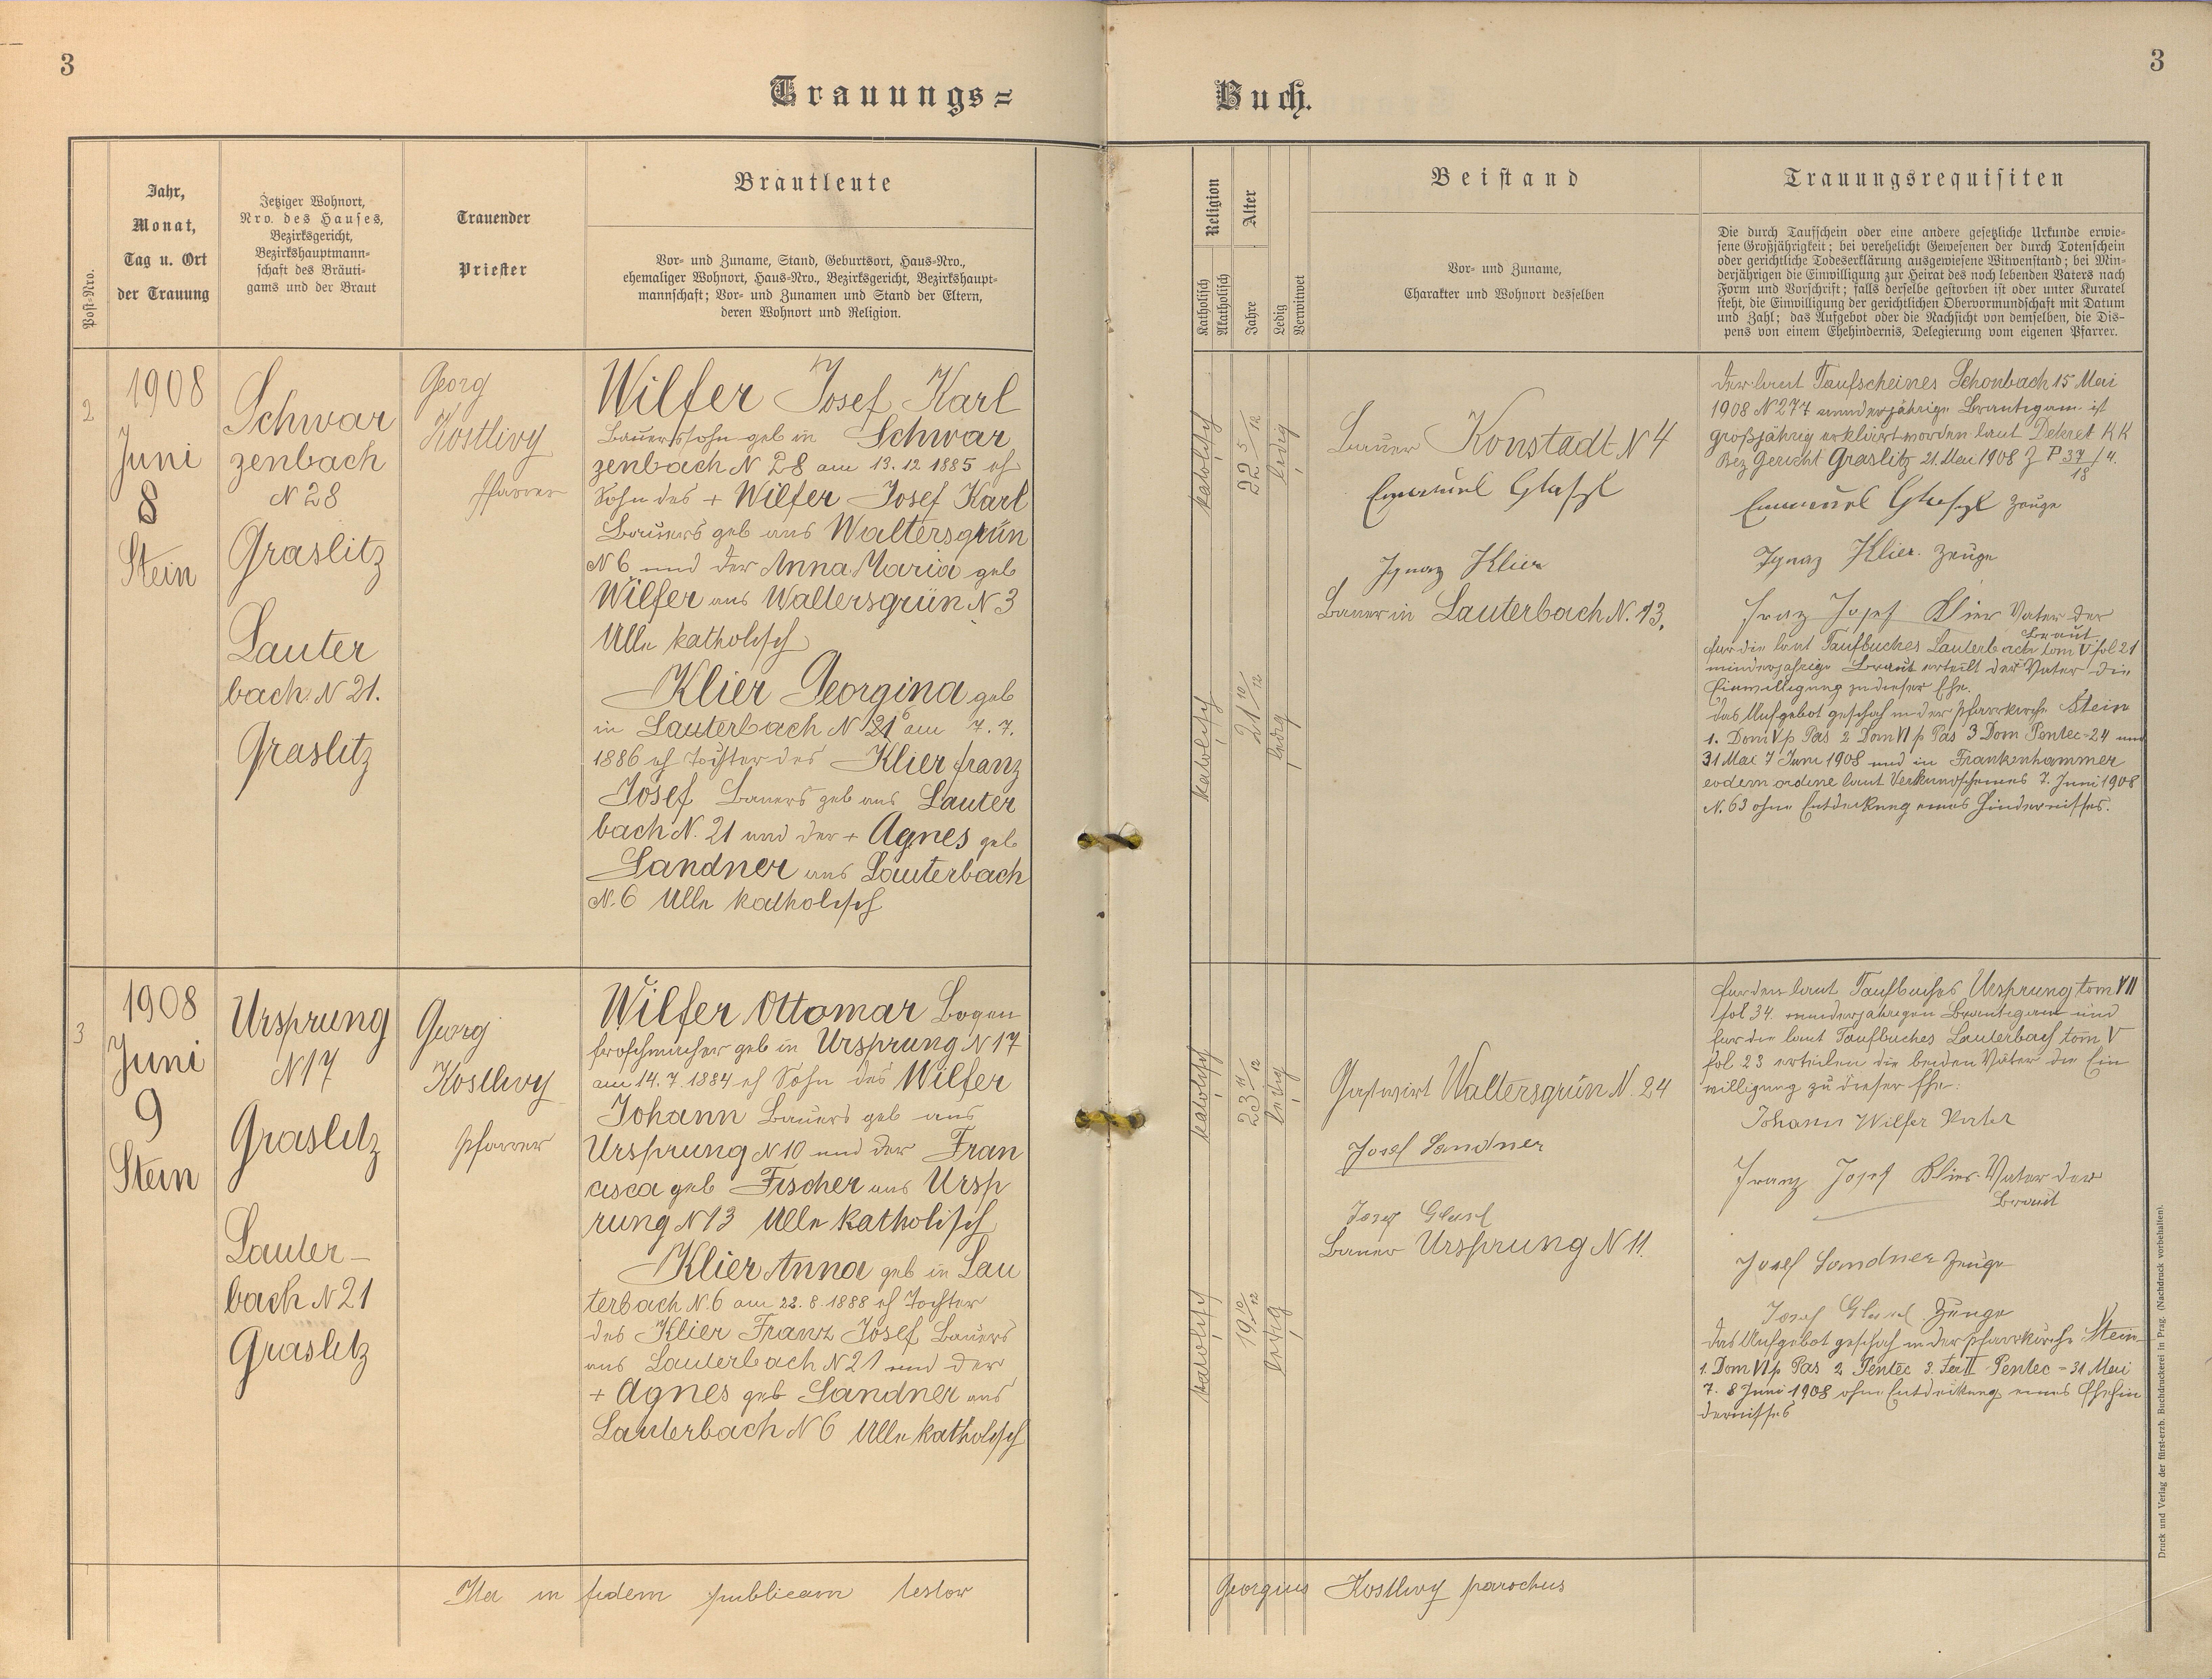 3
3
Trauungs=
Buch.
Post-Nro.
Jahr,
Monat,
Tag u. Ort
der Trauung
Jetziger Wohnort,
Nro. des Hauses,
Bezirksgericht,
Bezirkshauptmann-
schaft des Bräuti-
gams und der Braut
Trauender
Priester
Brautleute
Vor- und Zuname, Stand, Geburtsort, Haus-Nro.,
ehemaliger Wohnort, Haus-Nro., Bezirksgericht, Bezirkshaupt-
mannschaft; Vor- und Zunamen und Stand der Eltern,
deren Wohnort und Religion.
Religion
Katholisch
Akatholisch
Alter
Jahre
Ledig
Verwitwet
Beistand
Vor- und Zuname,
Charakter und Wohnort desselben
Trauungsrequisiten
Die durch Taufschein oder eine andere gesetzliche Urkunde erwie-
sene Großjährigkeit; bei verehelicht Gewesenen der durch Totenschein
oder gerichtliche Todeserklärung ausgewiesene Witwenstand; bei Min-
derjährigen die Einwilligung zur Heirat des noch lebenden Vaters nach
Form und Vorschrift; falls derselbe gestorben ist oder unter Kuratel
steht, die Einwilligung der gerichtlichen Obervormundschaft mit Datum
und Zahl; das Aufgebot oder die Nachsicht von demselben, die Dis-
pens von einem Ehehindernis, Delegierung vom eigenen Pfarrer.
2
1908
Juni
8
Stein
Schwar
zenbach
N 28
Graslitz
Lauter
bach N 21.
Graslitz
Georg
Kostlivy
Pfarrer
Wilfer Josef Karl
Bauerssohn geb in Schwar
zenbach N 28 am 13.12 1885 eh
Sohn des + Wilfer Josef Karl
Bauers geb aus Waltersgrün
N 6 und der Anna Maria geb
Wilfer aus Waltersgrün N 3
Alle katholisch
Klier Georgina geb
in Lauterbach N 21 6 am 7.7.
1886 eh Tochter des Klier Franz
Josef Bauers geb aus Lauter
bach N. 21 und der + Agnes geb
Sandner aus Lauterbach
N. 6 Alle katholisch
katholisch
22 5/12
ledig
katholisch
21 10/12
ledig
Bauer Konstadt N 4
Emanuel Glassl
Ignaz Klier
Bauer in Lauterbach N. 13.
Der laut Taufscheines Schonbach 15 Mai
1908 N 277 minderjährige Brautigam ist
großjährig erklärt worden laut Dekret K K
Bez Gericht Graslitz 21. Mai 1908 Z P 37/18 / 4.
Emanuel Glassl Zeuge
Ignaz Klier Zeuge
Franz Josef Klier Vater der
Braut
Fur die laut Taufbuches Lauterbach tom V fol 21
minderjahrige Braut erteilt der Vater die
Einwilligung zu dieser Ehe.
Das Aufgebot geschah in der Pfarrkirche Stein
1. Dom V p Pas 2 Dom VI p Pas 3 Dom Pentec = 24 und
31 Mai 7 Juni 1908 und in Frankenhammer
eodem ordine laut Verkundscheines 7. Juni 1908
N. 63 ohne Entdeckung eines Hindernisses.
3
1908
Juni
9
Stein
Ursprung
N 17
Graslitz
Lauter-
bach N 21
Graslitz
Georg
Kostlivy
Pfarrer
Wilfer Ottomar Bogen
froschmacher geb in Ursprung N 17
am 14. 7. 1884 eh Sohn des Wilfer
Johann Bauers geb aus
Ursprung N 10 und der Fran
cisca geb Fischer aus Ursp
rung N 13 Alle katholisch
Klier Anna geb in Lau
terbach N. 6 am 22. 8. 1888 eh Tochter
des Klier Franz Josef Bauers
aus Lauterbach N 21 und der
+ Agnes geb Sandner aus
Lauterbach N 6 Alle katholisch
katholisch
23 11/12
ledig
katholisch
19 10/12
ledig
Gastwirt Waltersgrün N. 24
Josef Sandner
Josef Glassl
Bauer Ursprung N 11.
Fur den laut Taufbuches Ursprung tom VII
fol 34. minderjahrigen Brautigam und
fur die laut Taufbuches Lauterbach tom V
fol 23 erteilen die beiden Väter die Ein
willigung zu dieser Ehe:
Johann Wilfer Vater
Franz Josef Klier Vater der
Braut
Josef Sandner Zeuge
Josef Glassl Zeuge
Das Aufgebot geschah in der Pfarrkirche Stein
1. Dom VI p Pas 2 Pentec 3. Fer II Pentec = 31 Mai
7. 8 Juni 1908 ohne Entdeckung eines Ehehin
dernisses
Ita in fidem publicam testor
Georgius Kostlivy parochus
Druck und Verlag der fürst-erzb. Buchdruckerei in Prag. (Nachdruck vorbehalten).